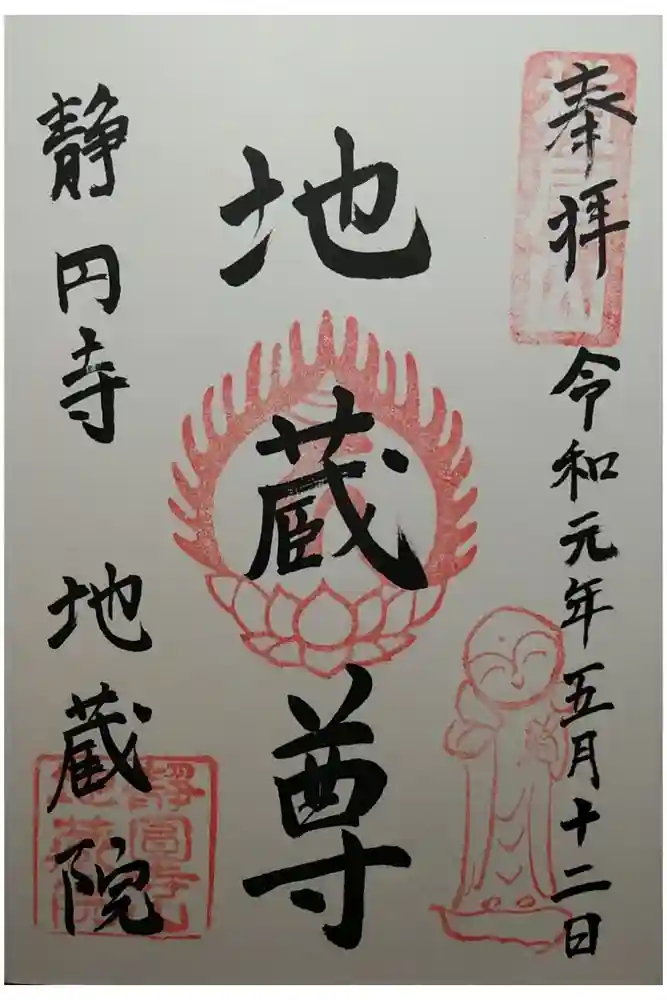 奉拝 令和元年五月十二日
地蔵尊
静円寺 地蔵院
静圓寺
地蔵院